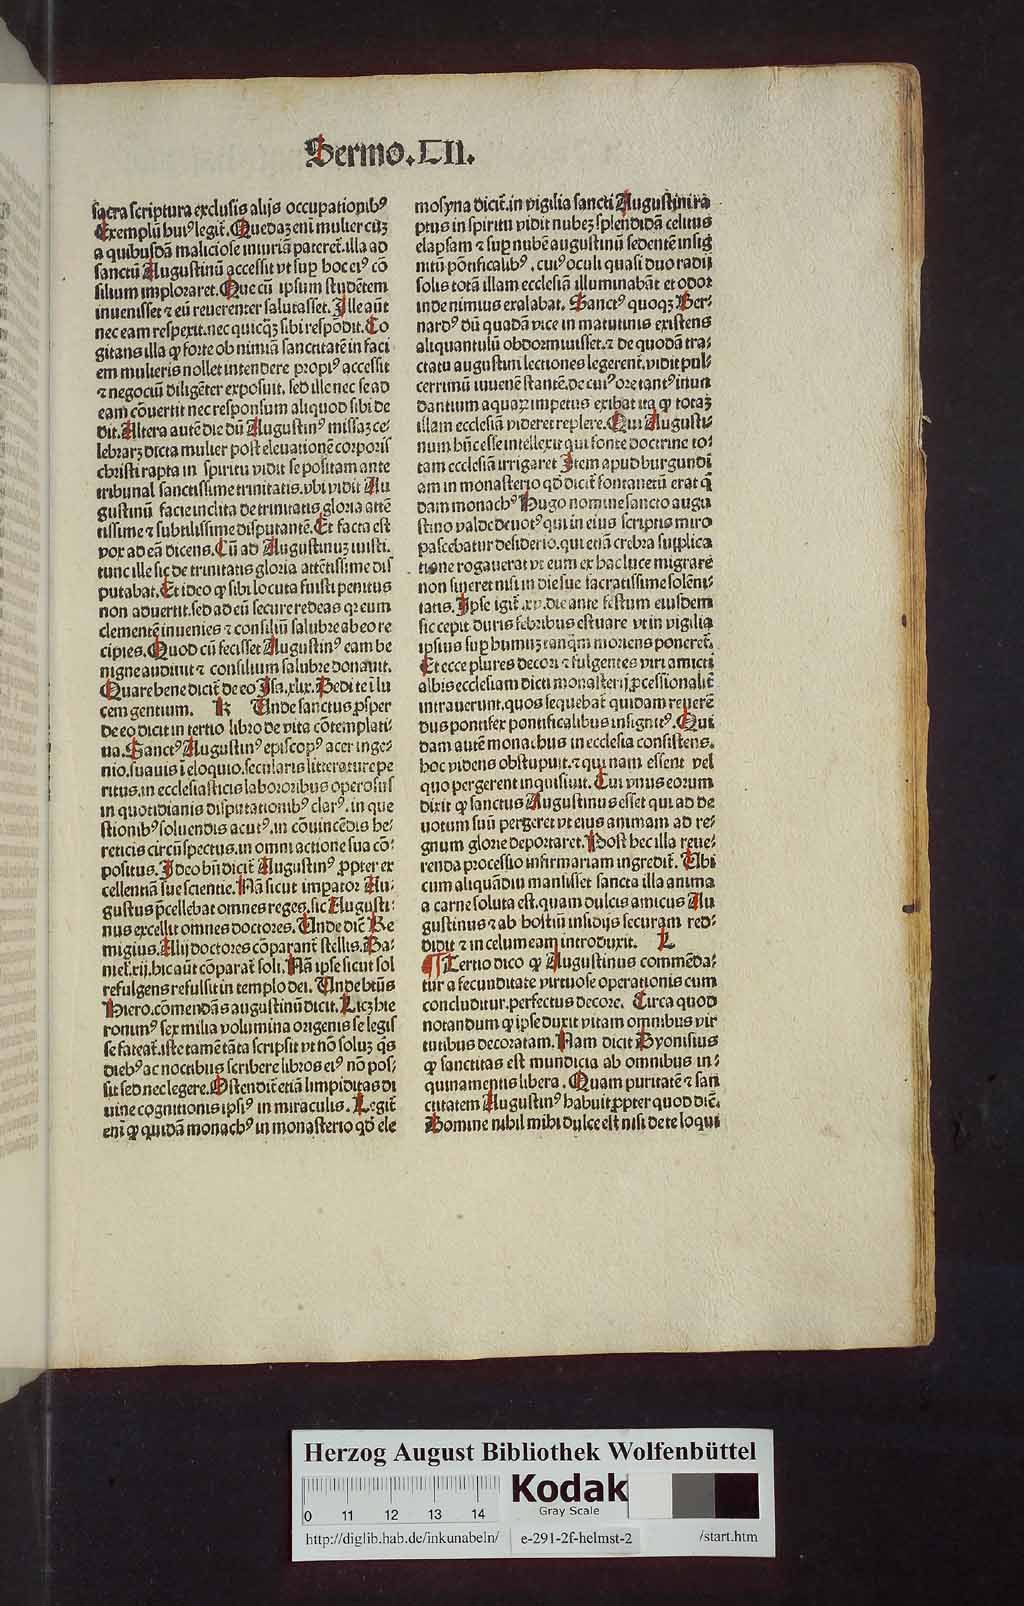 Sermo.LII.
sacra scriptura exclusis alijs occupationibꝰ
Exemplū huiꝰ legit̄. Quedaꝫ eni mulier cūꝫ
a quibusdā maliciose iniuriā pateret̄. illa ad
sanctū Augustinū accessit vt sup hoc eiꝰ cō
silium imploraret. Que cū ipsum studētem
inuenisset ⁊ eū reuerenter salutasset. Ille aūt
nec eam respexit. nec quicqꝫ sibi respōdit. Co
gitans illa ꝙ forte ob nimiā sanctitatē in faci
em mulieris nollet intendere propiꝰ accessit
⁊ negociū diligēter exposuit. sed ille nec se ad
eam cōuertit nec responsum aliquod sibi de
dit. Altera autē die dū Augustinꝰ missaꝫ ce⸗
lebrarꝫ dicta mulier post eleuationē corporis
christi rapta in spiritu vidit se positam ante
tribunal sanctissime trinitatis. vbi vidit Au
gustinū facie inclita de trinitatis gloria attē
tissime ⁊ subtilissime disputantē. Et facta est
vox ad eā dicens. Cū ad Augustinuꝫ iuisti.
tunc ille sic de trinitatis gloria attētissime dis
putabat. Et ideo ꝙ sibi locuta fuisti penitus
non aduertit. sed ad eū secure redeas qꝛ eum
clementē inuenies ⁊ consiliū salubre ab eo re
cipies. Quod cū fecisset Augustinꝰ eam be
nigne audiuit ⁊ consilium salubre donauit.
Quare bene dicit̄ de eo Isa. xlix. Dedi te ī lu
cem gentium. K Unde sanctus ꝓsper
de eo dicit in tertio libro de vita cōtemplati⸗
ua. Sanctꝰ Augustinꝰ episcopꝰ acer inge⸗
nio. suauis ī eloquio. secularis litterature pe
ritus. in ecclesiasticis labororibus operosus
in quotidianis disputationibꝰ clarꝰ. in que
stionibꝰ soluendis acutꝰ. in cōuincēdis he⸗
reticis circūspectus. in omni actione sua cō⸗
positus. Ideo bn̄ dicit̄ Augustinꝰ ꝓpter ex
cellentiā sue scientie. Nā sicut impator Au⸗
gustus p̄cellebat omnes reges. sic Augusti⸗
nus excellit omnes doctores. Unde dic̄ Re
migius. Alij doctores cōparant̄ stellis. Da⸗
niel̄. xij. hic aūt cōparat̄ soli. Nā ipse sicut sol
refulgens refulsit in templo dei. Unde btūs
Hiero. cōmendās augustinū dicit. Licꝫ hie
ronimꝰ sex milia volumina origenis se legis
se fateat̄. iste tamē tāta scripsit vt nō soluꝫ q̄s
diebꝰ ac noctibus scribere libros eiꝰ nō pos⸗
sit sed nec legere. Ostendit̄ etiā limpiditas di
uine cognitionis ipsiꝰ in miraculis. Legit̄
eni ꝙ quidā monachꝰ in monasterio qd̄ ele
mosyna dicit̄. in vigilia sancti Augustini ra
ptus in spiritu vidit nubeꝫ splendidā celitus
elapsam ⁊ sup nubē augustinū sedentē insig
nitū pōntificalibꝰ. cuiꝰ oculi quasi duo radij
solis totā illam ecclesiā illuminabāt et odor
inde nimius exalabat. Sanctꝰ quoqꝫ Ber⸗
nardꝰ dū quadā vice in matutinis existens
aliquantulū obdormiuisset. ⁊ de quodā tra⸗
ctatu augustini lectiones legerent̄. vidit pul⸗
cerrimū iuuenē stantē. de cuiꝰ ore tantꝰ inun
dantium aquaꝝ impetus exibat ita ꝙ totaꝫ
illam ecclesiā videret replere. Qui Augusti⸗
num bn̄ esse intellexit qui fonte doctrine to⸗
tam ecclesiā irrigaret Item apud burgundi
am in monasterio qd̄ dicit̄ fontanetū erat q̄
dam monachꝰ Hugo nomine sancto augu
stino valde deuotꝰ qui in eius scriptis miro
pascebatur desiderio. qui etiā crebra supplica
tione rogauerat vt eum ex hac luce migrare
non sineret nisi in die sue sacratissime solēni⸗
tatis. Ipse igit̄ .xv. die ante festum eiusdem
sic cepit duris febribus estuare vt in vigilia
ipsius sup humuꝫ tanq̄m moriens poneret̄.
Et ecce plures decori ⁊ fulgentes viri amicti
albis ecclesiam dicti monasterij ꝓcessionalit̄
intrauerunt. quos sequebat̄ quidam reuerē
dus pontifex pontificalibus insignitꝰ. Qui
dam autē monachus in ecclesia consistens.
hoc videns obstupuit. ⁊ qui nam essent vel
quo pergerent inquisiuit. Cui vnus eorum
dixit ꝙ sanctus Augustinus esset qui ad de
uotum suū pergeret vt eius animam ad re⸗
gnum glorie deportaret. Post hec illa reue⸗
renda processio infirmariam ingredit̄. Ubi
cum aliquādiu mansisset sancta illa anima
a carne soluta est. quam dulcis amicus Au
gustinus ⁊ ab hostiū insidijs securam red⸗
didit ⁊ in celum eam introduxit. L
¶ Tertio dico ꝙ Augustinus commēda⸗
tur a fecunditate virtuose operationis cum
concluditur. perfectus decore. Circa quod
notandum ꝙ ipse duxit vitam omnibus vir
tutibus decoratam. Nam dicit Dyonisius
ꝙ sanctitas est mundicia ab omnibus in⸗
quinamentis libera. Quam puritatē ⁊ san
ctitatem Augustinꝰ habuit ꝓpter quod dic̄.
Domine nihil mihi dulce est nisi de te loqui
Herzog August Bibliothek Wolfenbüttel
0 11 12 13 14
Kodak
Gray Scale
http://diglib.hab.de/inkunabeln/ e-291-2f-helmst-2 /start.htm